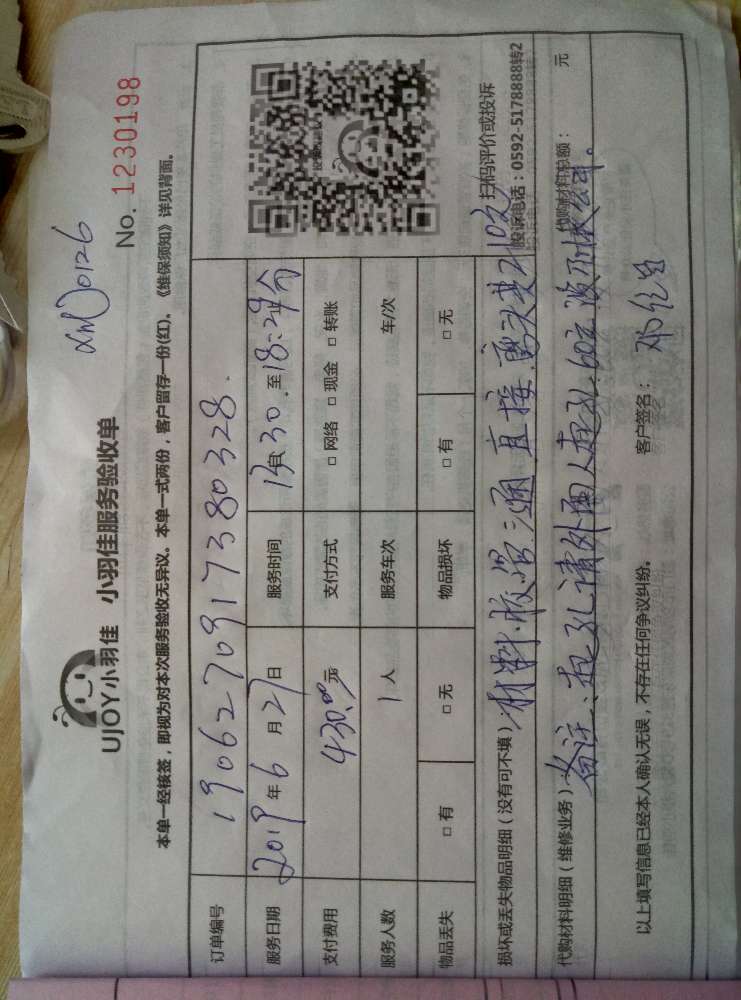 UJOY小羽佳 小羽佳服务验收单
xmJ0126
No. 1230198
本单一经核签，即视为对本次服务验收无异议。本单一式两份，客户留存一份(红)、《维保须知》详见背面。
订单编号 1906270917380328
服务日期 2019年6月27日 服务时间 13:30至18:29分
支付费用 430.00元 支付方式 □网络 □现金 □转账
服务人数 1人 服务车次 车/次
物品丢失 □有 □无 物品损坏 □有 □无
扫码评价或投诉
投诉电话：0592-5178888转2
损坏或丢失物品明细（没有可不填）材料 三通直接
代购材料明细（维修业务） 代购材料总额： 元
备注、孔请外面人 孔 60元
以上填写信息已经本人确认无误，不存在任何争议纠纷。 客户签名：